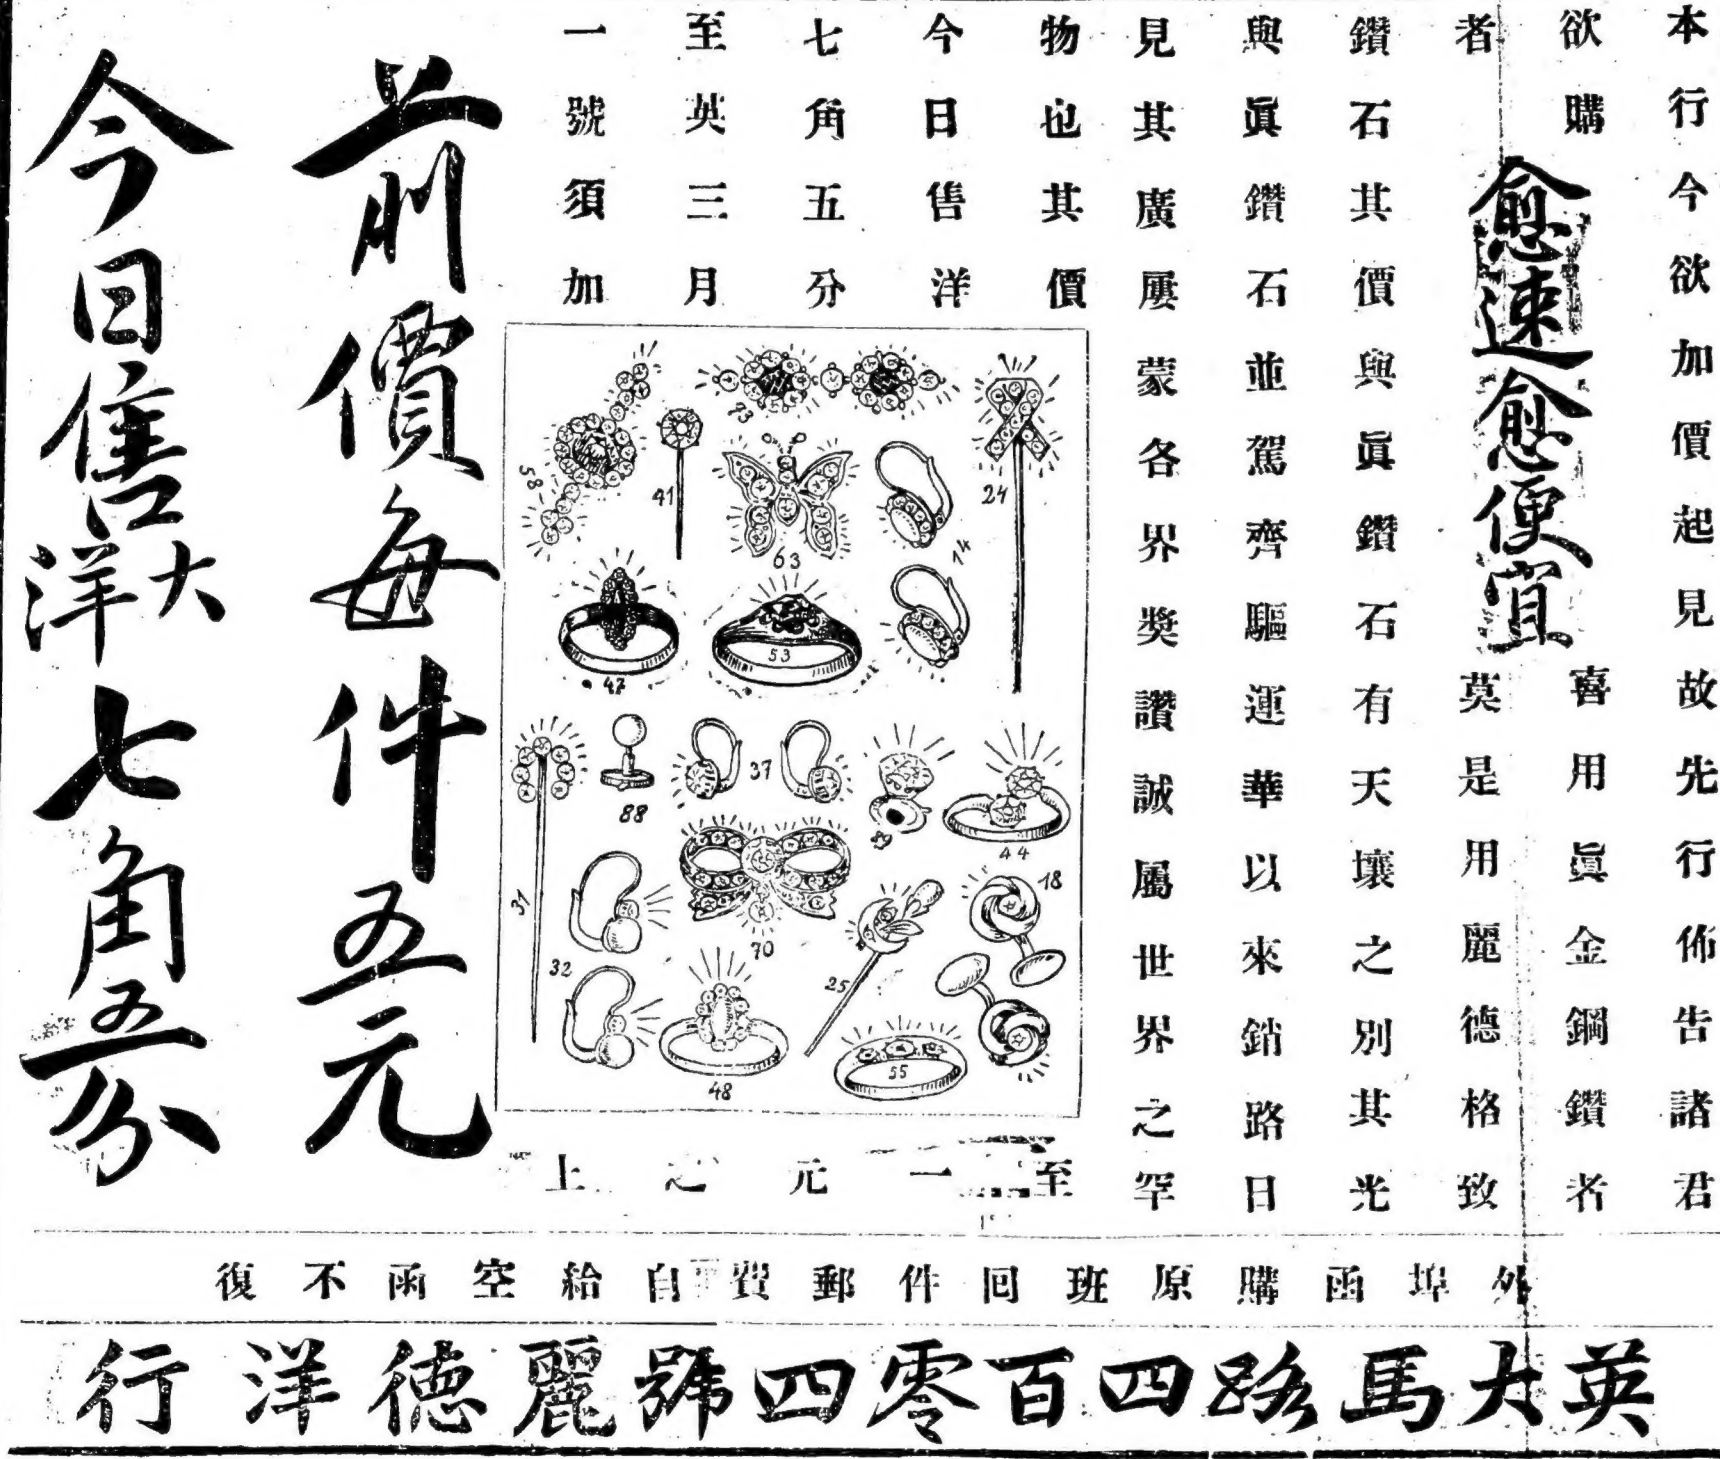 本行今欲加價起見故先行佈告諸君
欲購
者
愈速愈便宜
喜用眞金鋼鑽者
莫是用麗德格致
鑽石其價與眞鑽石有天壤之別其光
與眞鑽石並駕齊驅運華以來銷路日
見其廣屢蒙各界獎讚誠屬世界之罕
物也其價
今日售洋
七角五分
至英三月
一號須加
至一元之上
58
41
93
63
14
24
47
53
31
88
37
44
32
70
25
18
48
55
前價每件五元
今日售大洋七角五分
外埠函購原班回件郵費自給空函不復
英大馬路四百零四號麗德洋行